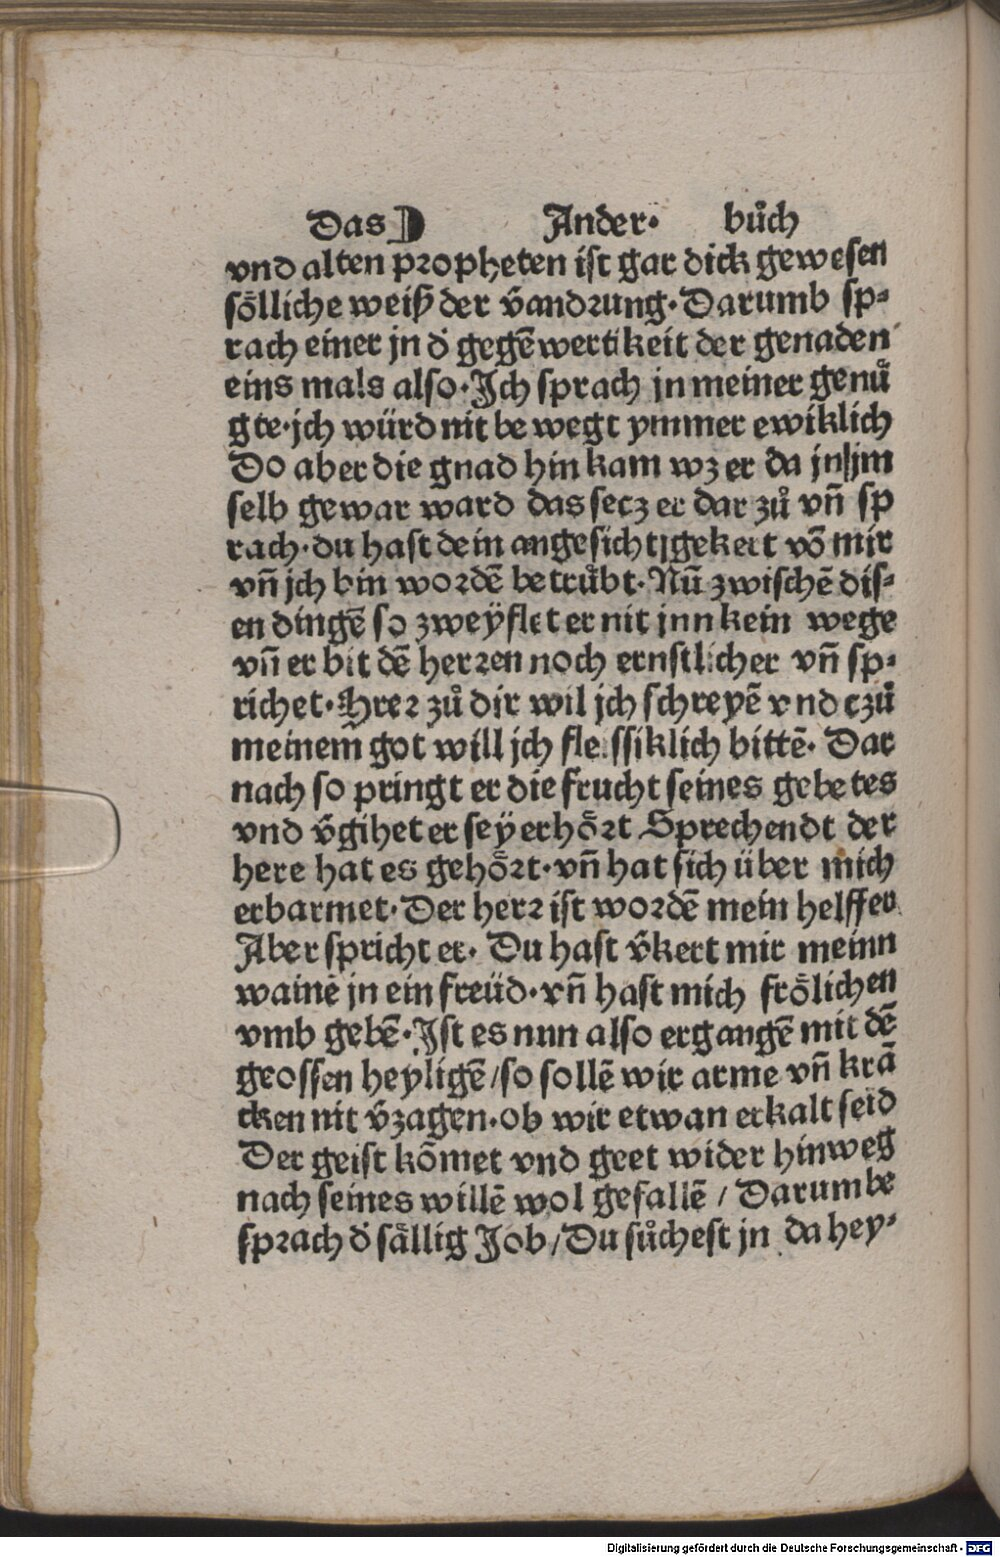 Das Ander· bůch
vnd alten propheten ist gar dick gewesen
soͤlliche weiß der v̄andrung·Darumb sp⸗
rach einer jn d̓ gegēwertikeit der genaden
eins mals also·Jch sprach jn meiner genuͤ
gte·jch würd nit be wegt ymmer ewiklich
Do aber die gnad hin kam wz er da jn jm
selb gewar ward das secz er dar zů vn̄ sp
rach·du hast dein angesicht gekert vō mir
vn̄ jch bin wordē betruͤbt·Nū zwischē dis⸗
en dingē so zweÿflet er nit jnn kein wege
vn̄ er bit dē herren noch ernstlicher vn̄ sp⸗
richet·Hrer zů dir wil jch schreyē vnd czů
meinem̄ got will jch fleissiklich bittē· Dar
nach so pringt er die frucht seines gebetes
vnd v̄gihet er seÿ erhoͤrt Sprechendt der
here hat es gehoͤrt·vn̄ hat sich über mich
erbarmet·Der herr ist wordē mein helffer
Aber spricht er· Du hast v̄kert mir meinn
wainē jn ein freüd·vn̄ hast mich froͤlichen
vmb gebē·Jst es nun also ergangē mit dē
grossen heyligē/so sollē wir arme vn̄ krā
cken nit v̄zagen·ob wir etwan erkalt seid
Der geist kōmet vnd geet wider hinweg
nach seines willē wol gefallē / Darumbe
sprach d̓ saͤllig Job/Du sůchest jn da hey⸗
Digitalisierung gefördert durch die Deutsche Forschungsgemeinschaft - DFG